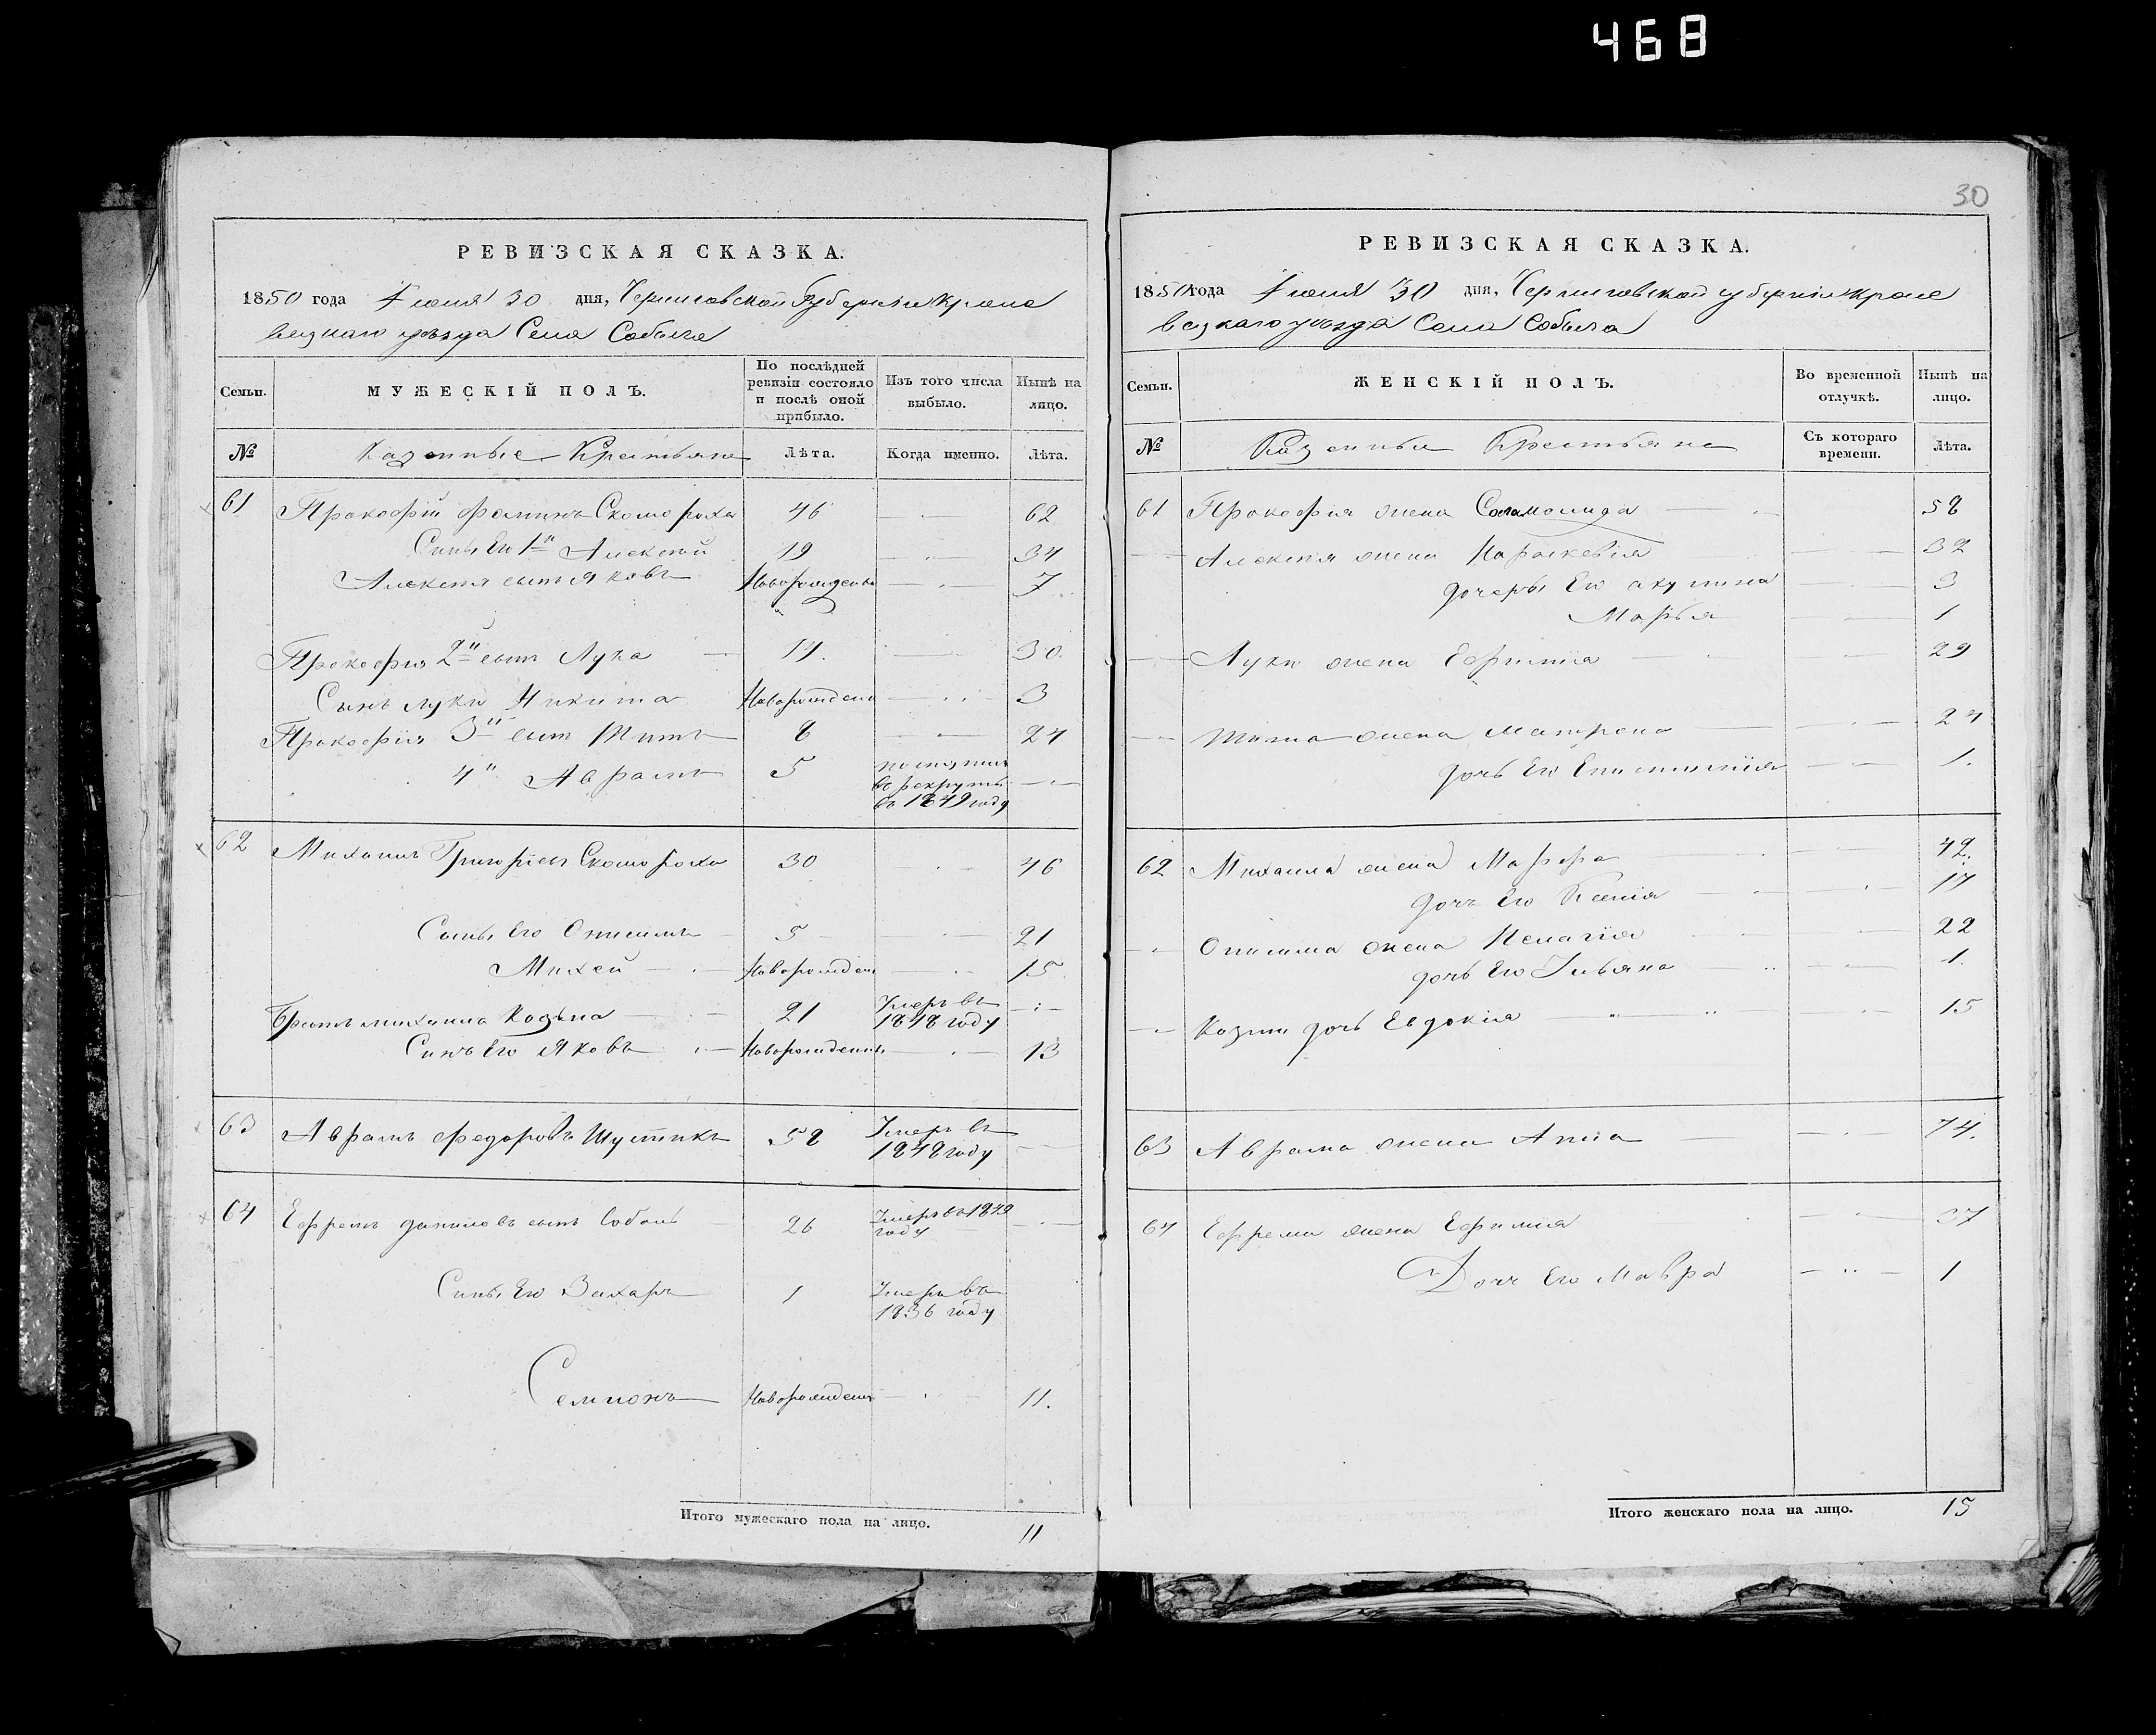 468
РЕВИЗСКАЯ СКАЗКА.
1850 года Іюня 30 дня, Черниговской Губерніи Кроле
вецкаго уѣзда Села Собыча
Семьи.
МУЖЕСКІЙ ПОЛЪ.
По послѣдней ревизіи состояло и послѣ оной прибыло.
Изъ того числа выбыло.
Нынѣ на лицо.
№
Казенные Крестьяне
Лѣта.
Когда именно.
Лѣта.
61 Прокофій Фоминъ Скомороха 46 62
Сынъ Его 1й Алексѣй 19 34
Алексѣя сынъ Яковъ Новорожденъ 7
Прокофія 2й сынъ Лука 14. 30.
Сынъ Луки Никита Новорожденъ 3
Прокофія 3й сынъ Титъ 8 24
4й Аврамъ 5
въ рекруты
въ 1849 году
62 Михаилъ Григорьевъ Скомороха 30 46
Сынъ Его Онисимъ 5 21
Михей Новорожден 15
Братъ михаила Козьма 21 Умеръ въ
1848 году
Сынъ Его Яковъ Новорожденъ 13
63 Аврамъ Федоровъ Шустикъ 58 Умеръ въ
1848 году
64 Ефремъ даниловъ сынъ 26 Умеръ въ 1849
году
Сынъ Его Захаръ 1 Умеръ въ
1836 году
Семионъ Новорожденъ 11.
Итого мужескаго пола на лицо. 11
30
РЕВИЗСКАЯ СКАЗКА.
1850 года Іюня 30 дня, Черниговской губерніи Кроле
вецкаго уѣзда Села Собыча
Семьи.
ЖЕНСКІЙ ПОЛЪ.
Во временной отлучкѣ.
Нынѣ на лицо.
№
Казенные Крестьяне
Съ котораго времени.
Лѣта.
61 Прокофія жена Соломонида 58
Алексѣя жена Параскевія 32
дочеры Его акулина 3
Марья 1
Луки жена Ефимія 29
Тита жена Матрена 24
дочь Его 1.
62 Михаила жена Марфа 42.
дочь Его Ксенія 17
Онисима жена Пелагія 22
дочь Его Ульяна 1.
Козми дочь Евдокія 15
63 Аврама жена Анна 74.
64 Ефрема жена Ефимія 37
Дочь Его Мавра 1
Итого женскаго пола на лицо. 15